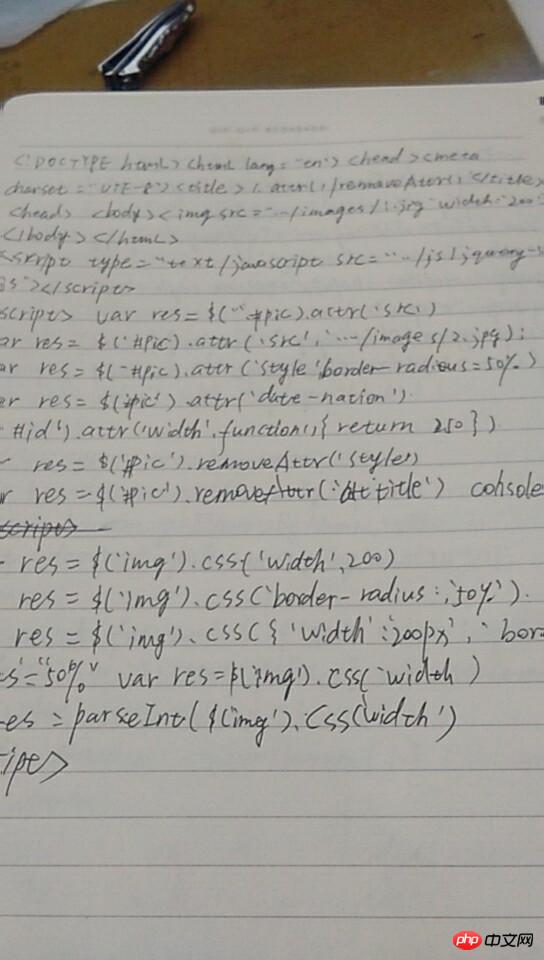 <!DOCTYPE html> <html lang="en"> <head> <meta
charset="UTF-8"> <title> .attr() /removeAttr() </title>
head> <body> <img src="../images/1.jpg" width="200"
</body> </html>
<script type="text/javascript src="../js/jquery-
></script>
script> var res = $("#pic).attr('src')
ar res = $('#pic').attr('src','.../images/2.jpg');
ar res = $('#pic).attr('style 'border-radious=50%')
ar res = $('#pic').attr('date-nation')
#id').attr('width',function(){ return 250 })
res = $('#pic').removeAttr('style')
ar res = $('#pic').removeAttr('title') console
script>
res = $('img').css('width',200)
res = $('img').css('border-radius:,50%').
res = $('img').css({ 'width':'200px', 'bor
s'="50%" var res=$('img').css('width)
es = parseInt($('img').css('width')
ipt>
php 中文网